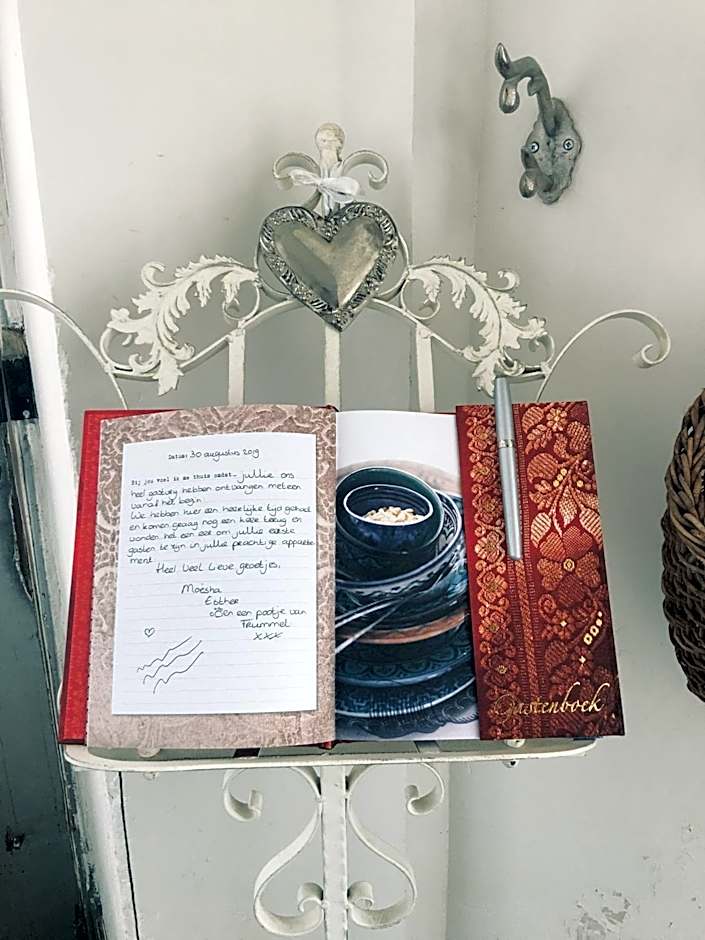 Datum: 30 augustus 2019
Bij jou voel ik me thuis omdat... jullie ons
heel gastvrij hebben ontvangen meteen
vanaf het begin.
We hebben hier een heerlijke tijd gehad
en komen graag nog een keer terug en
vonden het een eer om jullie eerste
gasten te zijn in jullie prachtige apparte
ment.
Heel veel lieve groetjes,
Moësha
Esther
en een pootje van
Trummel
xxx
Gastenboek